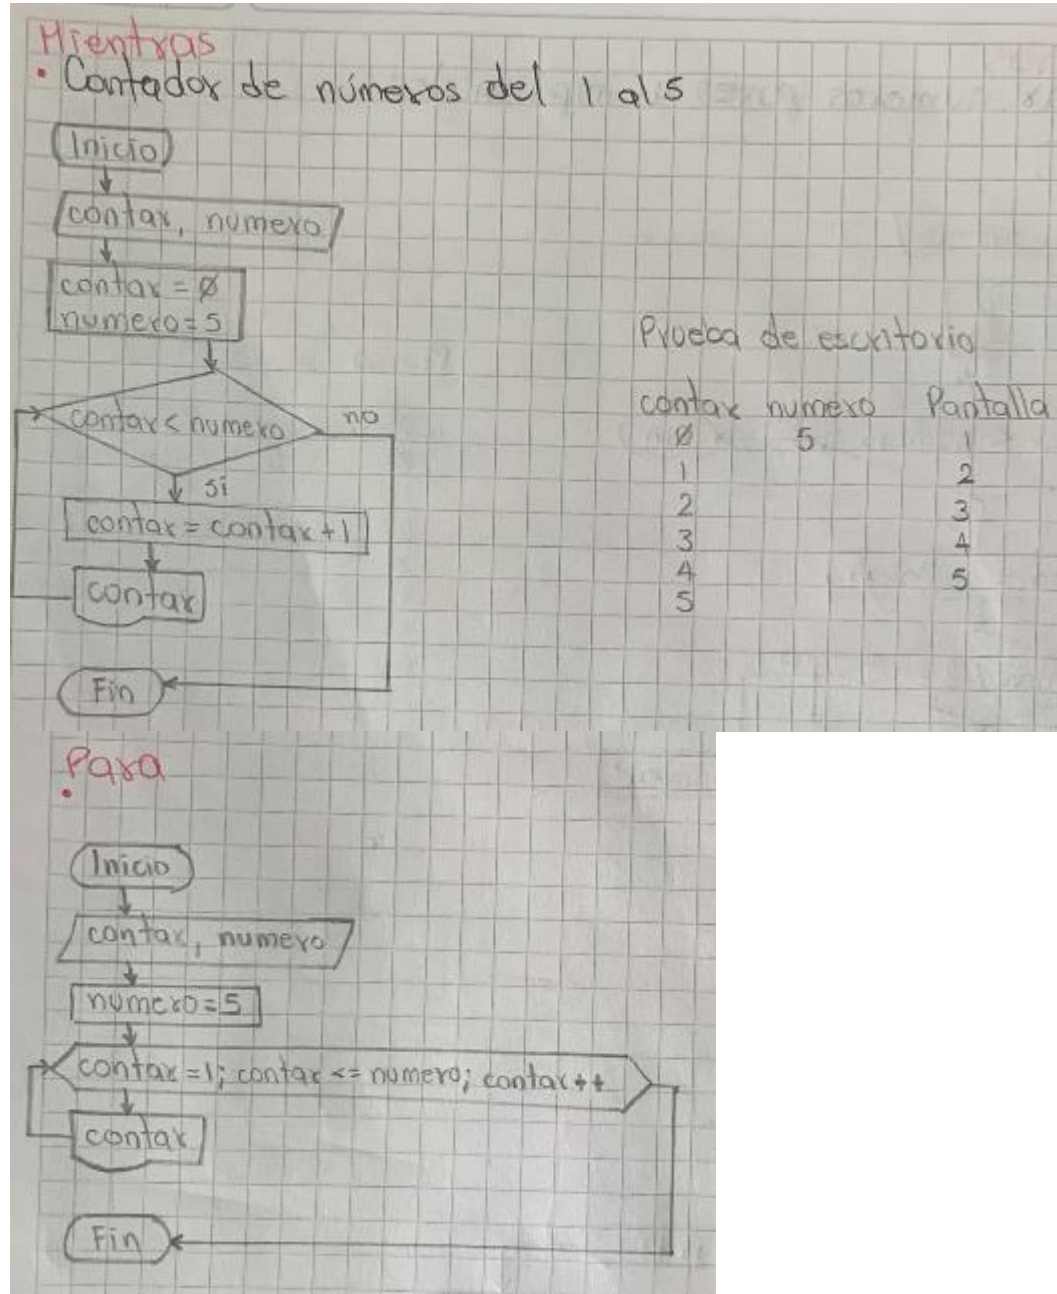 Mientras
• Contador de números del 1 al 5
Inicio
contar, numero
contar = 0
numero = 5
contar < numero
no
si
contar = contar + 1
contar
Fin
Prueba de escritorio
contar numero Pantalla
0 5 1
1 2
2 3
3 4
4 5
5
Para
•
Inicio
contar, numero
numero = 5
contar = 1; contar <= numero; contar ++
contar
Fin